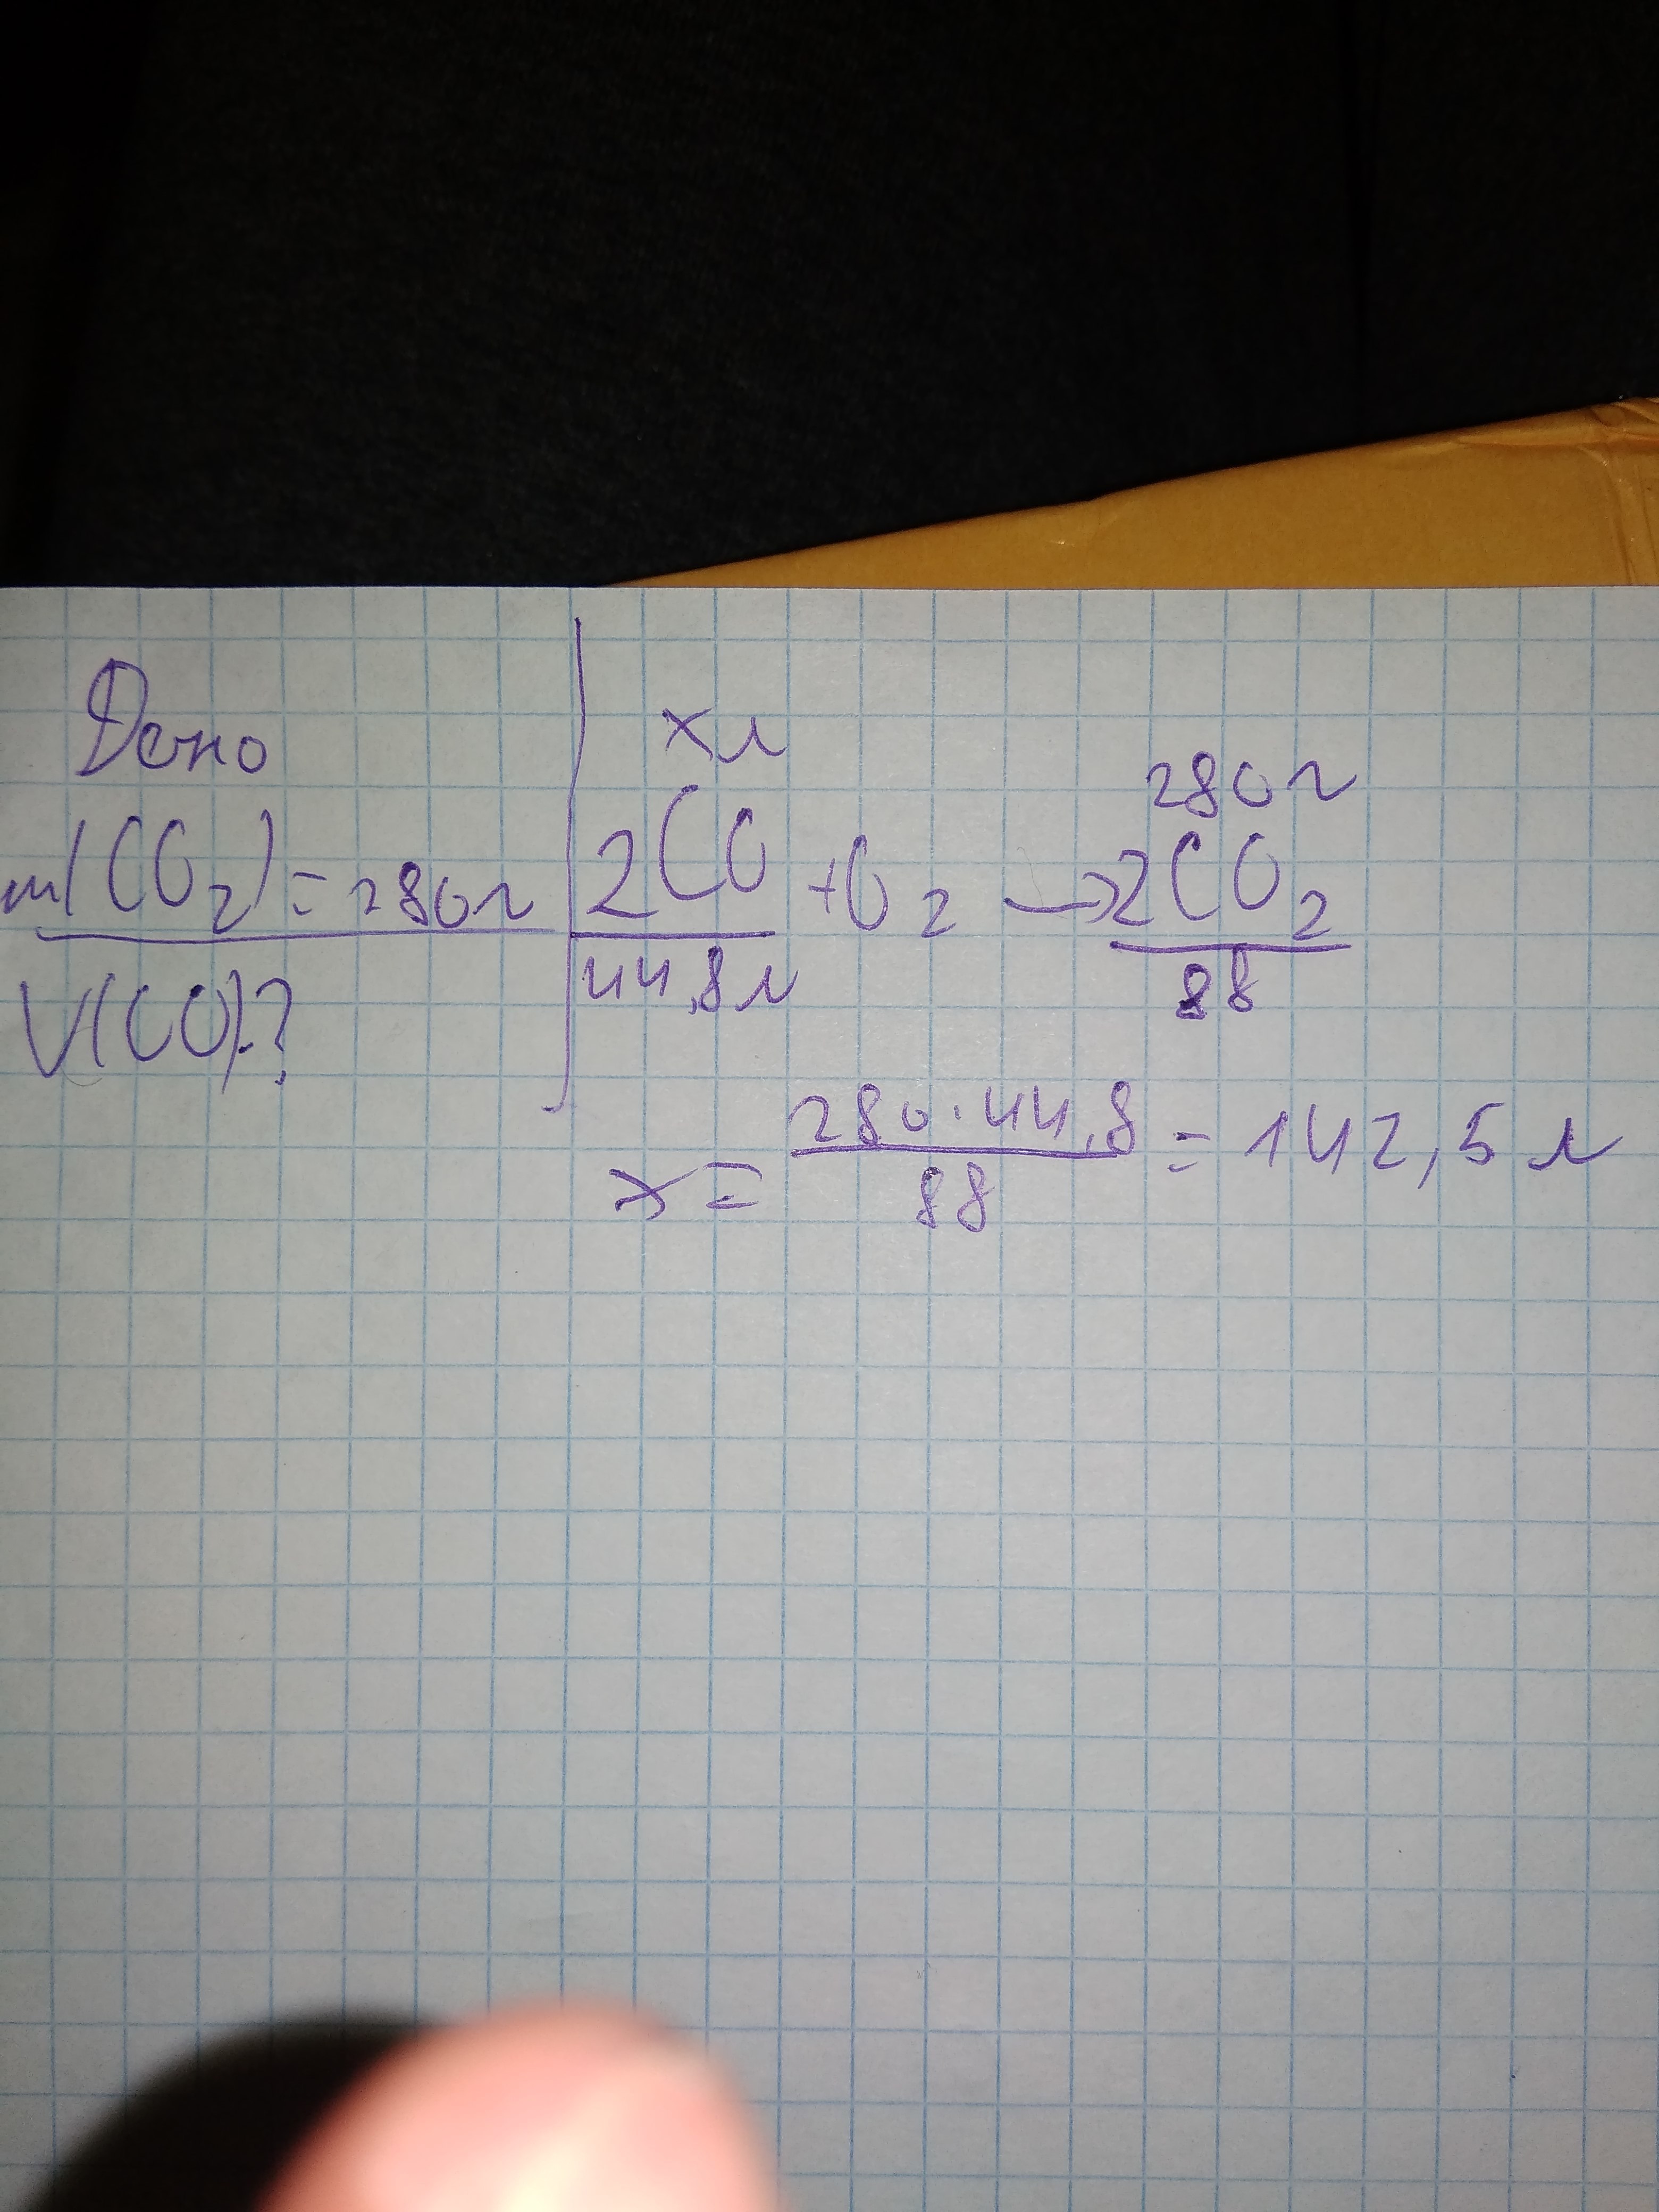 Дано
m(CO₂)=280г
V(CO)-?
x л
280г
2CO + O₂ → 2CO₂
44,8л
88
x = 280·44,8/88 = 142,5 л